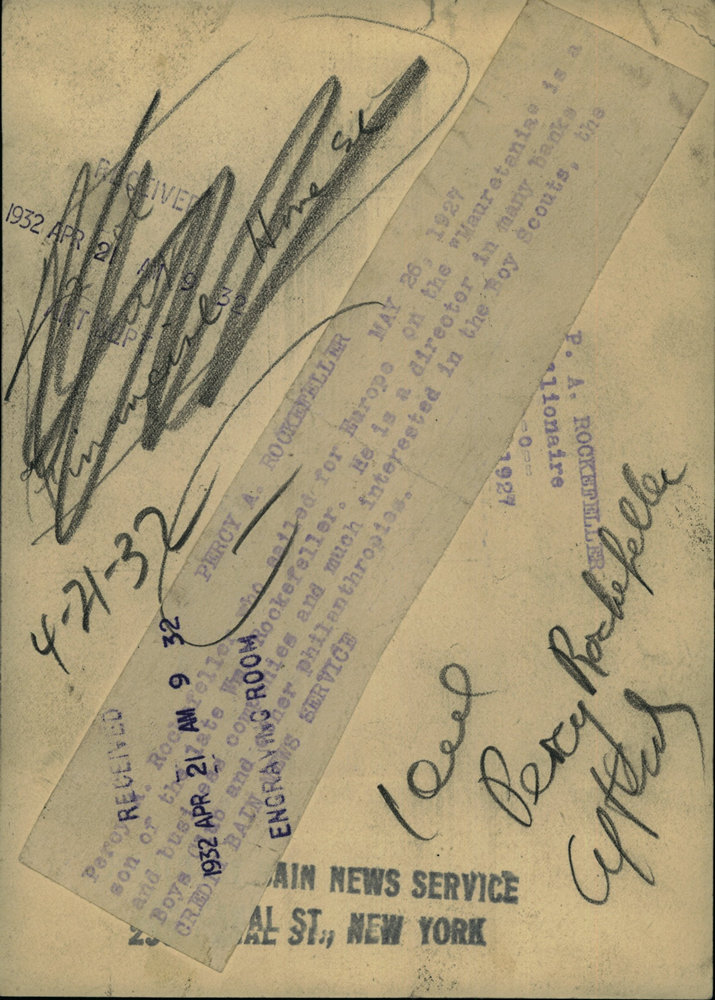 RECEIVED
1932 APR 21 AM 9 32
Financial Home Se
4-21-32
PERCY A. ROCKEFELLER MAY 26, 1927
Percy A. Rockefeller who sailed for Europe on the "Mauretania" is a
son of the late Wm. Rockefeller. He is a director in many banks
and business companies and much interested in the Boy Scouts, the
Boys Club and other philanthropies.
CREDIT BAIN NEWS SERVICE
P. A. ROCKEFELLER
llionaire
-0-
1927
RECEIVED
1932 APR 21 AM 9 32
ENGRAVING ROOM
1 col
Percy Rockefeller
AIN NEWS SERVICE
AL ST., NEW YORK